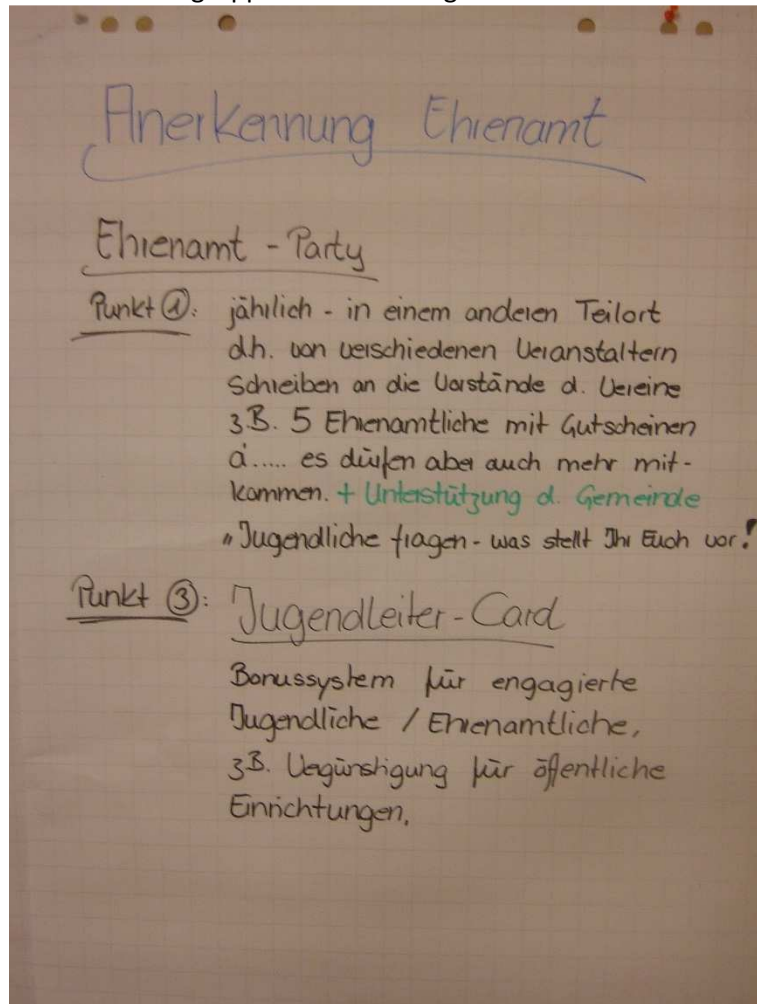 Anerkennung Ehrenamt
Ehrenamt - Party
Punkt ①: jährlich - in einem anderen Teilort
d.h. von verschiedenen Veranstaltern
Schreiben an die Vorstände d. Vereine
z.B. 5 Ehrenamtliche mit Gutscheinen
á..... es dürfen aber auch mehr mit-
kommen. + Unterstützung d. Gemeinde
" Jugendliche fragen - was stellt Ihr Euch vor!
Punkt ③: Jugendleiter - Card
Bonussystem für engagierte
Jugendliche / Ehrenamtliche,
z.B. Vergünstigung für öffentliche
Einrichtungen,